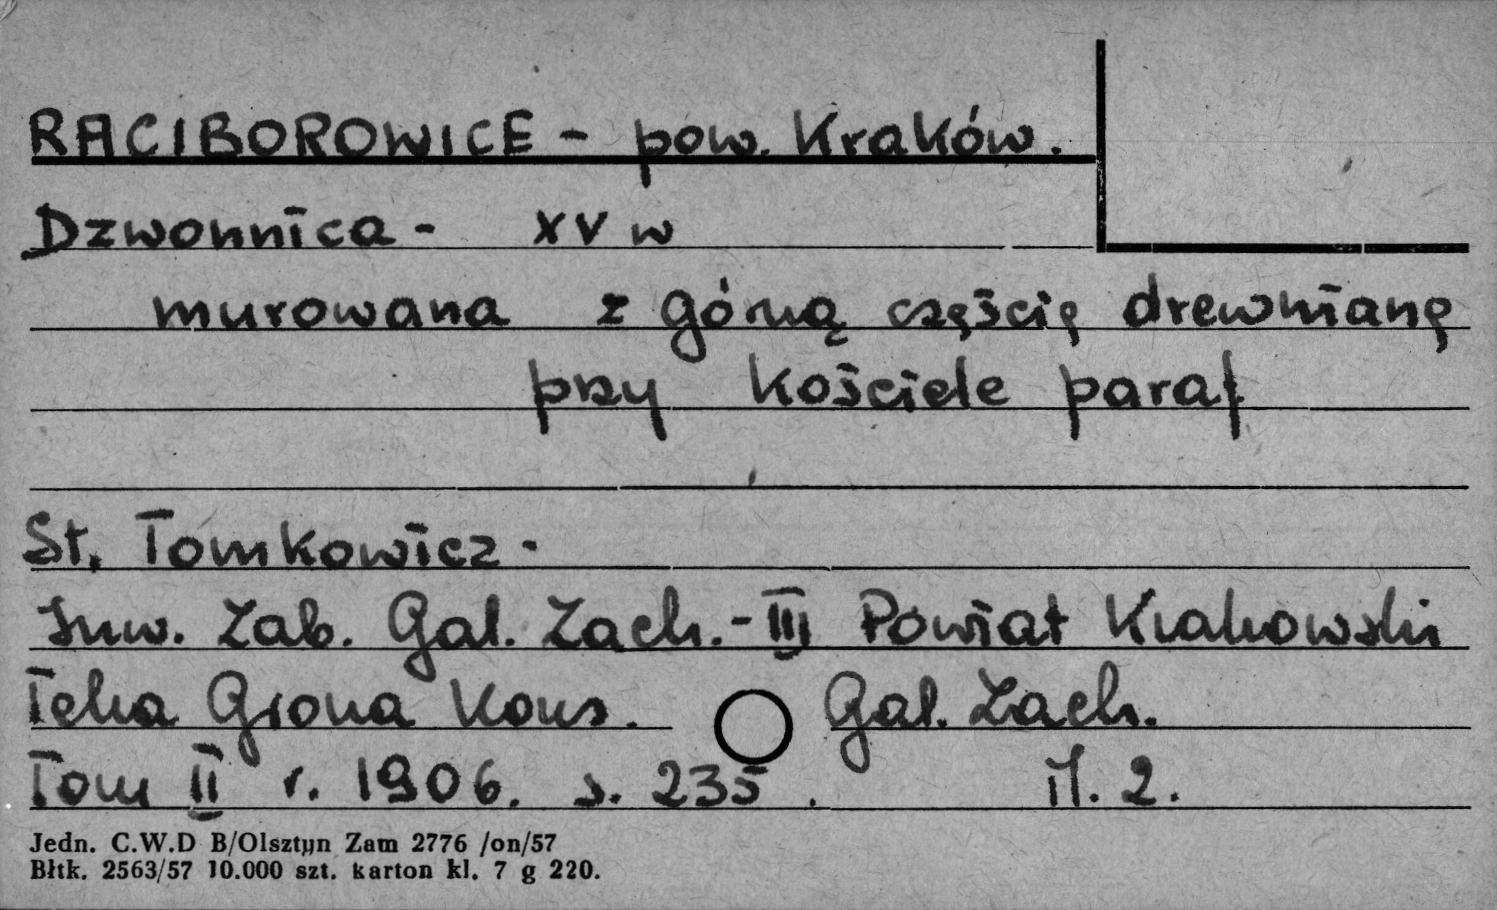 RACIBOROWICE - pow. Kraków.
Dzwonnica - XV w
murowana z górną częścią drewnianą
przy kościele paraf
St. Tomkowicz -
Inw. Zab. Gal. Zach. - III Powiat Krakowski
Teka Grona Kons. Gal. Zach.
Tom II r. 1906. s. 235. il. 2.
Jedn. C.W.D B/Olsztyn Zam 2776 /on/57
Błtk. 2563/57 10.000 szt. karton kl. 7 g 220.